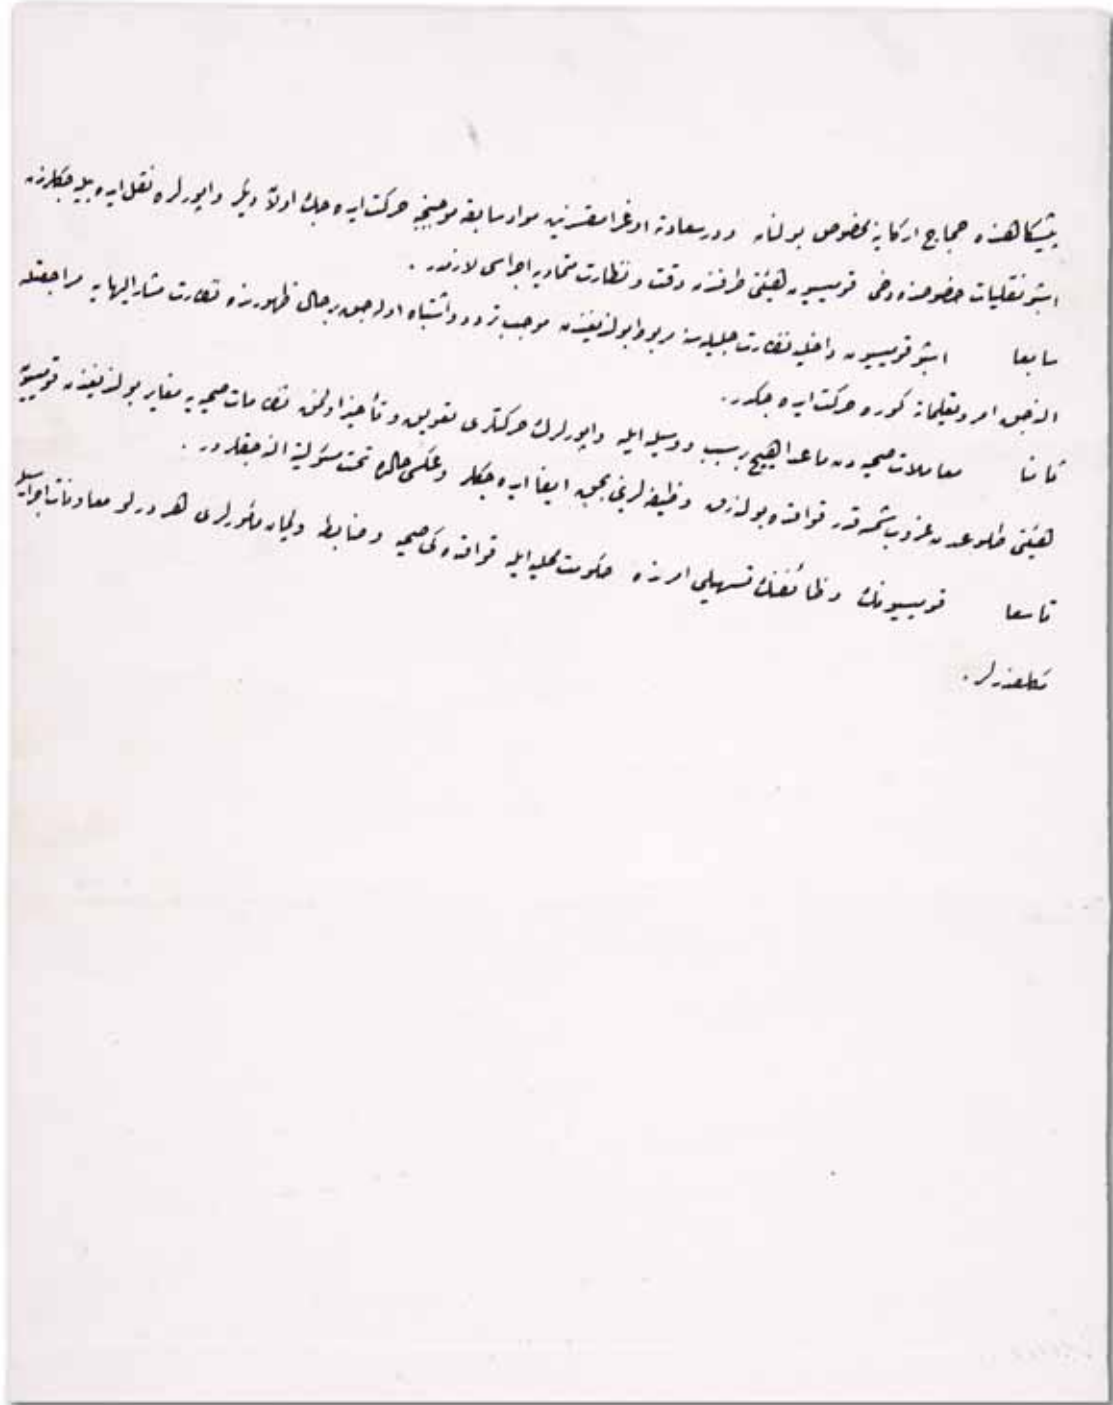 پیشگاهنده حجاج ارکابنه مخصوص بولنان و درسعادته اوغرامقسزین مواد سابقه موجبنجه حرکت ایده جك اولان دیگر واپورلره نقل ایده بیله جکلرندن
اشبو نقلیات خصوصنده دخی قومیسیون هیئتی طرفندن دقت و نظارت متمادیه اجراسی لازمدر .
سابعا اشبو قومیسیون داخلیه نظارت جلیله سنه مربوط بولندیغندن موجب تردد و اشتباه اوله جق بر حال ظهورنده نظارت مشار الیهایه مراجعتله
اله جق امر و تعلیماته کوره حرکت ایده جکدر .
ثامنا معاملات صحیه دن ماعدا هیچ بر سبب و وسیله ایله واپورلرك حرکتلری تعویق و تأخیر اولنمق نظامات صحیه یه مغایر بولندیغندن قومیسیون
هیئتی طلوعدن غروب شمسه قدر قواقده بوله رق وظیفه لرینی بحق ایفا ایده جکلر و عکس حالده تحت مسئولیته اله جقلردر .
تاسعا قومیسیونك وظائفنك تسهیلی امرنده حکومت محلیه ایله قواقده کی صحیه و ضابطه و لیمان مأمورلری هر درلو معاونات اجراسیله
مکلفدرلر .